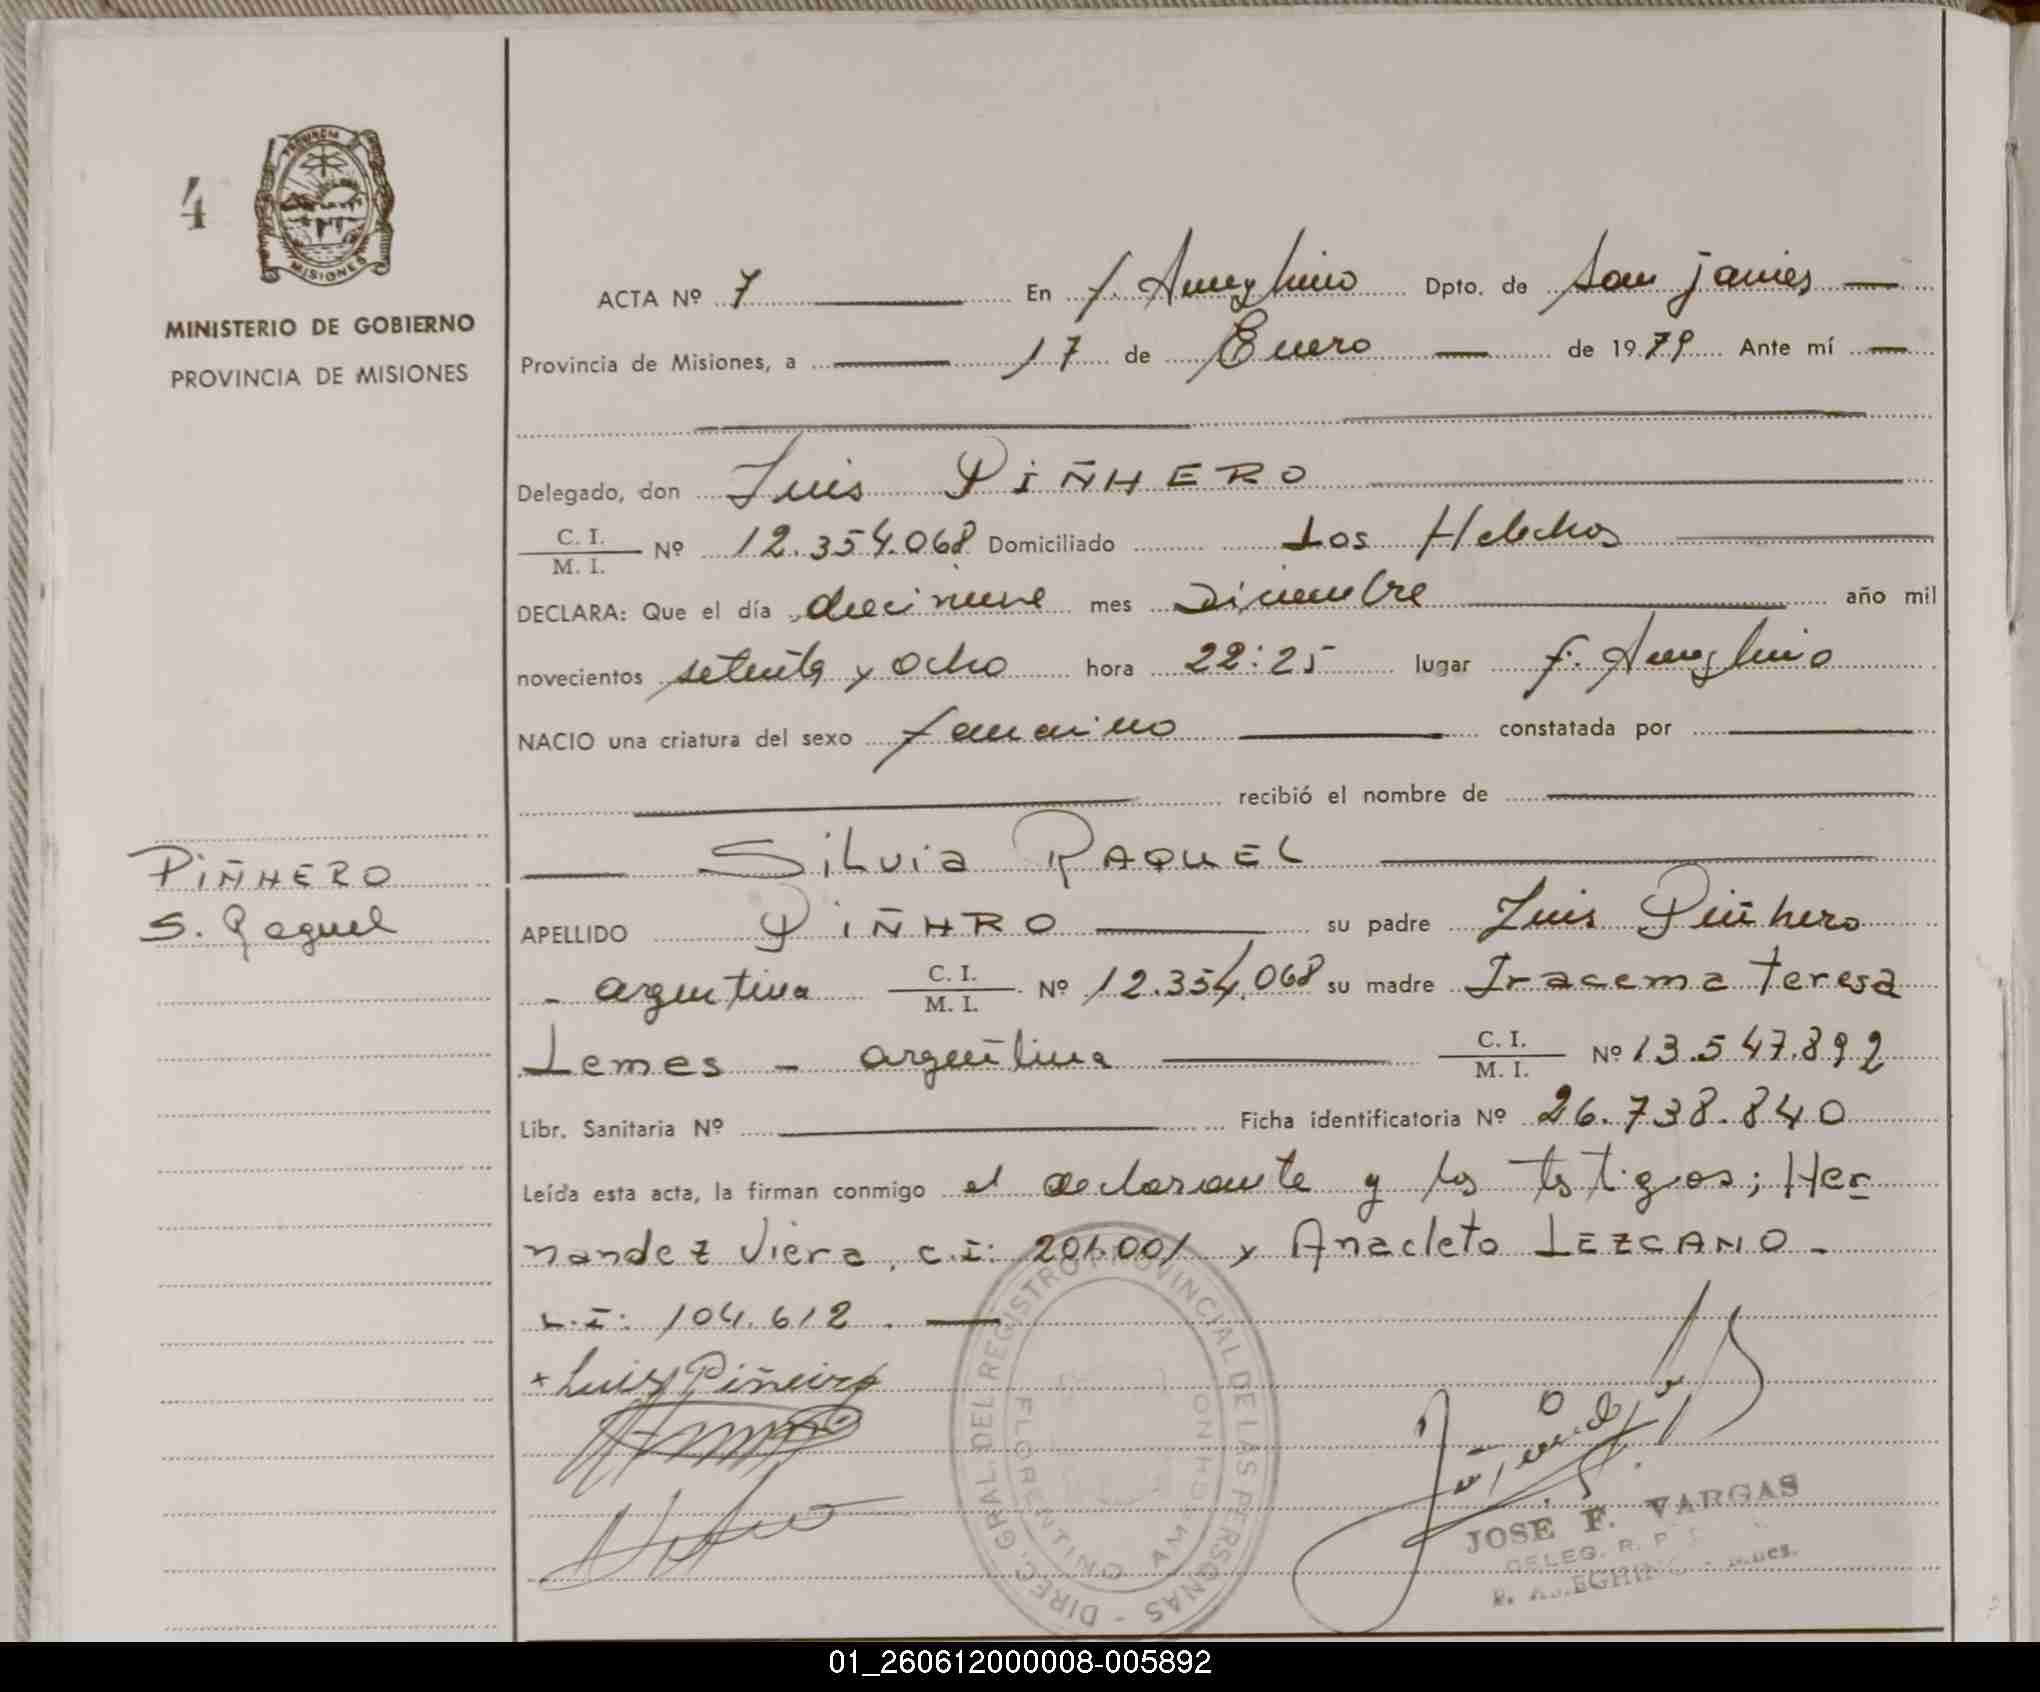 4
PROVINCIA
MISIONES
MINISTERIO DE GOBIERNO
PROVINCIA DE MISIONES
ACTA Nº 7 En F. Ameghino Dpto. de San Javier
Provincia de Misiones, a 17 de Enero de 1979 Ante mí
Delegado, don Luis PIÑHERO
C. I.
M. I. Nº 12.354.068 Domiciliado Los Helechos
DECLARA: Que el día diecinueve mes Diciembre año mil
novecientos setenta y ocho hora 22:25 lugar F. Ameghino
NACIO una criatura del sexo femenino constatada por
recibió el nombre de
SILVIA RAQUEL
PIÑHERO
S. Raquel
APELLIDO PIÑHRO su padre Luis Piñhero
- argentina C. I.
M. I. Nº 12.354.068 su madre Iracema Teresa
Lemes - argentina C. I.
M. I. Nº 13.547.892
Libr. Sanitaria Nº Ficha identificatoria Nº 26.738.840
Leída esta acta, la firman conmigo el declarante y los testigos; Her
nandez Viera, C.I: 201.001 y Anacleto LEZCANO -
C.I: 104.612.
+ Luis Piñeiro
DIREC. GRAL. DEL REGISTRO PROVINCIAL DE LAS PERSONAS -
FLORENTINO AMEGHINO
JOSE F. VARGAS
DELEG. R. P.
F. AMEGHINO - Mnes.
01_260612000008-005892